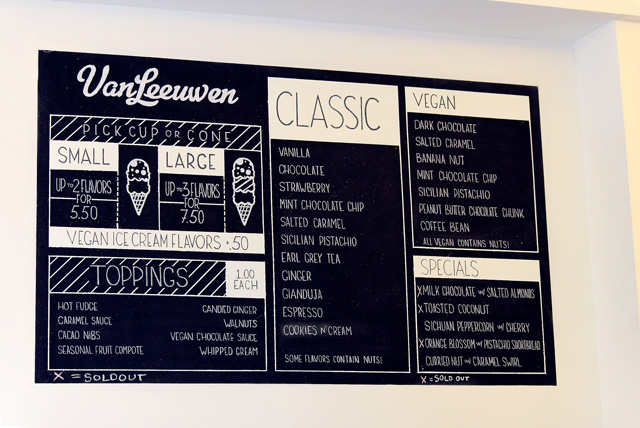 VanLeeuwen
PICK CUP OR CONE
SMALL
UP TO 2 FLAVORS
FOR
5.50
LARGE
UP TO 3 FLAVORS
FOR
7.50
VEGAN ICE CREAM FLAVORS +.50
TOPPINGS
1.00
EACH
HOT FUDGE
CARAMEL SAUCE
CACAO NIBS
SEASONAL FRUIT COMPOTE
CANDIED GINGER
WALNUTS
VEGAN CHOCOLATE SAUCE
WHIPPED CREAM
X = SOLD OUT
CLASSIC
VANILLA
CHOCOLATE
STRAWBERRY
MINT CHOCOLATE CHIP
SALTED CARAMEL
SICILIAN PISTACHIO
EARL GREY TEA
GINGER
GIANDUJA
ESPRESSO
COOKIES N CREAM
SOME FLAVORS CONTAIN NUTS!
VEGAN
DARK CHOCOLATE
SALTED CARAMEL
BANANA NUT
MINT CHOCOLATE CHIP
SICILIAN PISTACHIO
PEANUT BUTTER CHOCOLATE CHUNK
COFFEE BEAN
ALL VEGAN CONTAINS NUTS!
SPECIALS
X MILK CHOCOLATE w/ SALTED ALMONDS
X TOASTED COCONUT
SICHUAN PEPPERCORN w/ CHERRY
X ORANGE BLOSSOM w/ PISTACHIO SHORTBREAD
CURRIED NUT w/ CARAMEL SWIRL
X = SOLD OUT